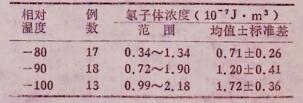 相对湿度 例数 氡子体浓度 (10⁻⁷J·m³)
范围 均值±标准差
-80 17 0.34~1.34 0.71±0.26
-90 18 0.72~1.90 1.20±0.41
-100 13 0.99~2.18 1.72±0.36